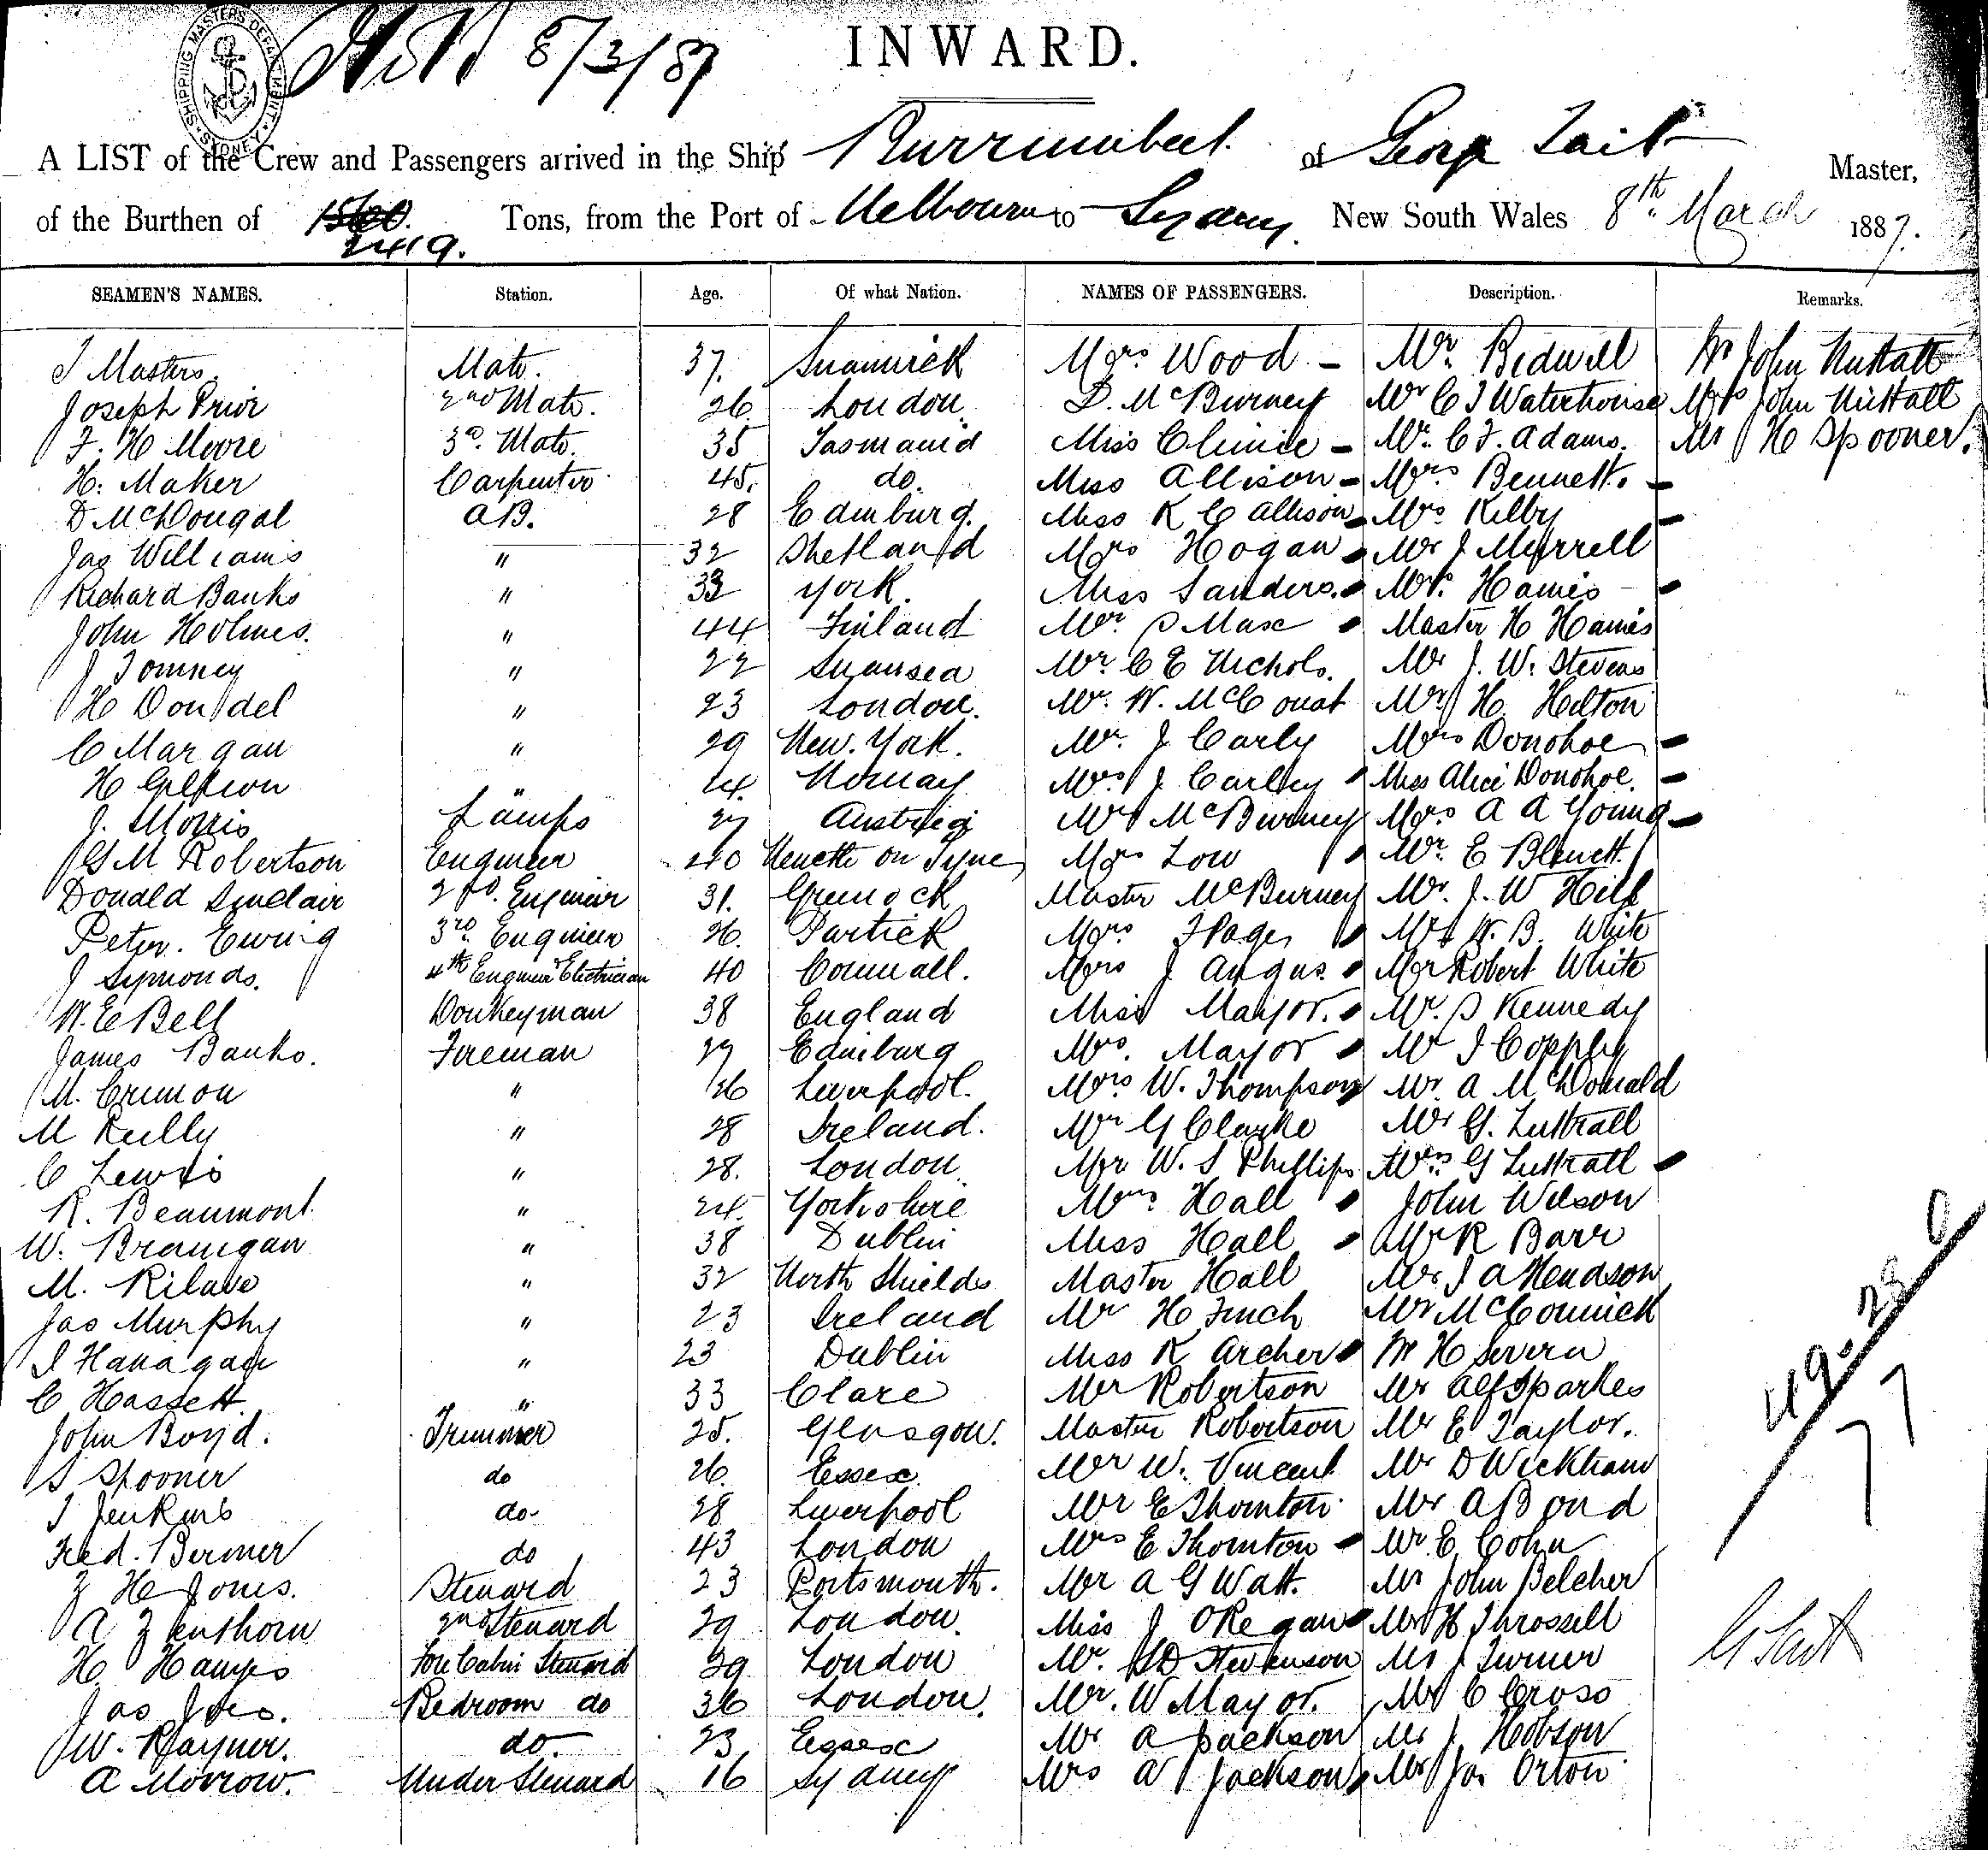 SHIPPING MASTERS DEPARTMENT SYDNEY
8/3/87
INWARD.
A LIST of the Crew and Passengers arrived in the Ship Burrumbeet. of George Tait Master,
of the Burthen of 2419. Tons, from the Port of Melbourne to Sydney. New South Wales 8th March 1887.
SEAMEN'S NAMES. Station. Age. Of what Nation. NAMES OF PASSENGERS. Description. Remarks.
J Masters. Mate. 37. Mrs Wood - Mr. Bidwell Mr John Nuttall
Joseph Prior 2nd Mate. 26. London. D. McBurney Mr C J Waterhouse Mrs John Nuttall
F. H Moore 3d. Mate. 35 Tasmania Miss - Mr. C F. Adams. Mr H Spooner.
H. Maker Carpenter 45. do. Miss Allison - Mrs Bennett. -
D McDougal AB. 28 Edinburg. Miss K C Allison - Mrs Kilby -
Jas Williams " 32 Shetland Mrs Hogan - Mr J Murrell
Richard Banks " 33 York. Miss Sanders. - Mrs. Hames -
John Holmes. " 44 Finland Mr. S Mase Master H Hames
J Tomney " 22 Swansea Mr. C E Nichols. Mr J. W. Stevens
H Dondel " 23 London. Mr. W. McCouat Mr H. Hilton
C Margan " 29 New. York. Mr. J Carly Mrs Donohoe -
H " 24. Norway Mrs J Carley - Miss Alice Donohoe. -
J. Morris Lamps 27 Austria Mr McBurney Mrs A A Young -
G M Robertson Engineer 40 on Tyne Mrs Low - Mr. E Blewett.
Donald Sinclair 2nd. Engineer 31. Greenock Master McBurney Mr. J. W Hill
Peter. Ewing 3rd Engineer 26. Partick Mrs F Page - Mr W. B. White
J Symonds. 4th Engineer Electrician 40 Cornwall. Mrs J Angus. - Mr Robert White
W. E Bell Donkeyman 38 England Miss Mayor. - Mr. S Kennedy
James Banks. Fireman 29 Edinburg Mrs. Mayor - Mr J Copply
M. Crimon " 26 Liverpool. Mrs W. Thompson Mr. A McDonald
M Reilly " 28 Ireland. Mr G Clarke Mr G. Luttrall
C Lewis " 28. London. Mr W. S Phillips Mrs G Luttrall -
R. Beaumont. " 24. Yorkshire Mrs Hall - John Wilson
W. Branigan " 38 Dublin Miss Hall - Mr R Barr
M. Rilave " 32 North Shields Master Hall Mr J A Hendson
Jas Murphy " 23 Ireland Mr H Finch Mr McCormick
J Flanagan " 23 Dublin Miss K Archer - Mr H Severn
C Hassett " 33 Clare Mr Robertson Mr Alf Sparkes
John Boyd. Trimmer 25. Glasgow. Master Robertson Mr E Taylor.
S Spooner do 26. Essex. Mr W. Vincent Mr D Wickham
J Jenkins do 28 Liverpool Mr E Thornton Mr A Bond
Fred. Bermer do 43 London Mrs E Thornton - Mr E Cohn
J H Jones. Steward 23 Portsmouth. Mr A G Watt. Mr John Belcher
A Zenthorn 2nd Steward 29 London. Miss J ORegan - Mr H Throssell
H. Hamps Fore Cabin Steward 29 London Mr. Stevenson Mr J Turner
Jas Bedroom do 36 London. Mr. W Mayor. Mr C Cross
W. Rayner. do. 23 Essex Mr A Jackson Mr J. Hobson
A Morrow. Under Steward 16 Sydney Mrs A Jackson - Mr Jas Orton
49. 28 0
77
G Tait